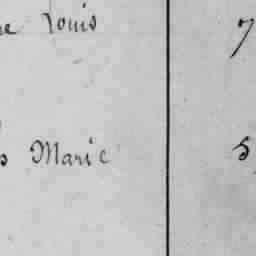 Louis 7
Marie 5